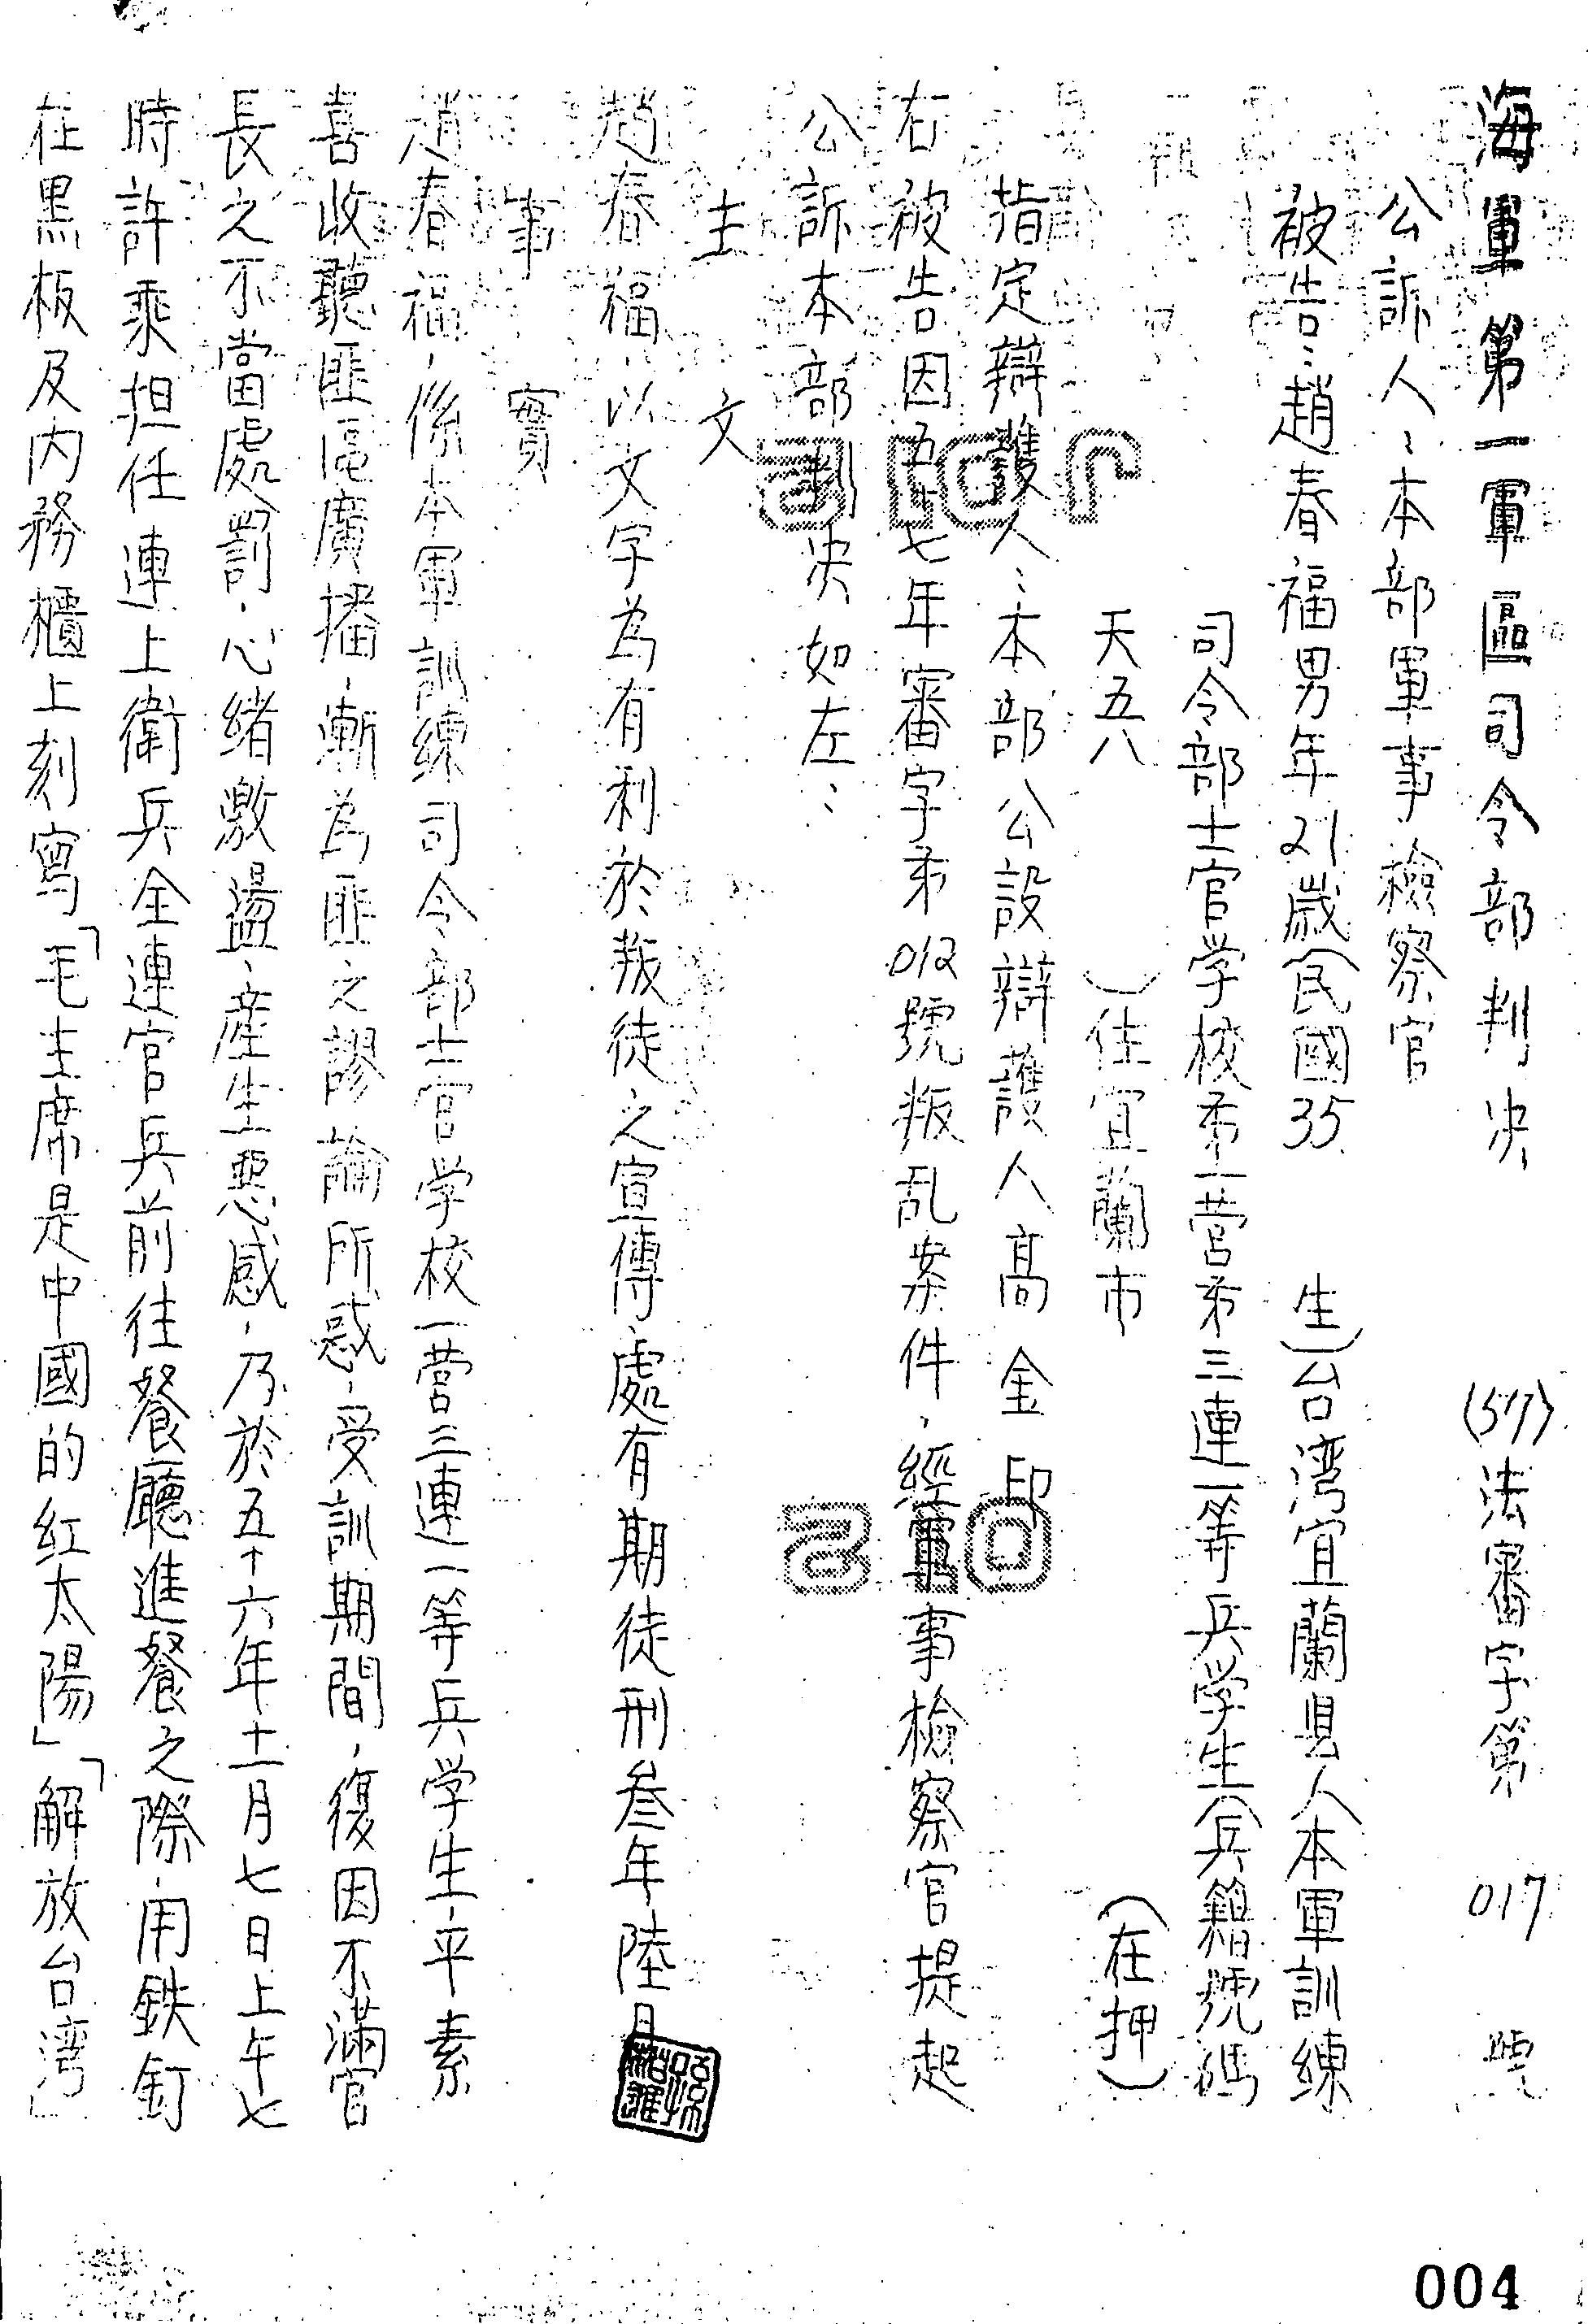 海軍第一軍區司令部判决 (57)法審字第 017 號
公訴人：本部軍事檢察官
被告：趙春福男年21歲(民國35 生)台湾宜蘭县人本軍訓練
司令部士官学校苐一营苐三連一等兵学生(兵籍號碼
天五八 )住宜蘭市 (在押)
指定辯護人：本部公設辯護人高金印
右被告因五十七年審字苐012號叛乱案件，經軍事檢察官提起
公訴本部判决如左：
主文
趙春福，以文字為有利於叛徒之宣傳，處有期徒刑叁年陸月
事實
趙春福，係本軍訓練司令部士官学校一营三連一等兵学生，平素
喜收聽匪區廣播，漸為匪之謬論所惑，受訓期間，復因不滿官
長之不當處罰，心緒激盪，產生惡感，乃於五十六年十一月七日上午七
時許乘担任連上衛兵全連官兵前往餐廳進餐之際，用鉄釘
在黑板及内務櫃上刻寫「毛主席是中國的红太陽」「解放台湾」
004